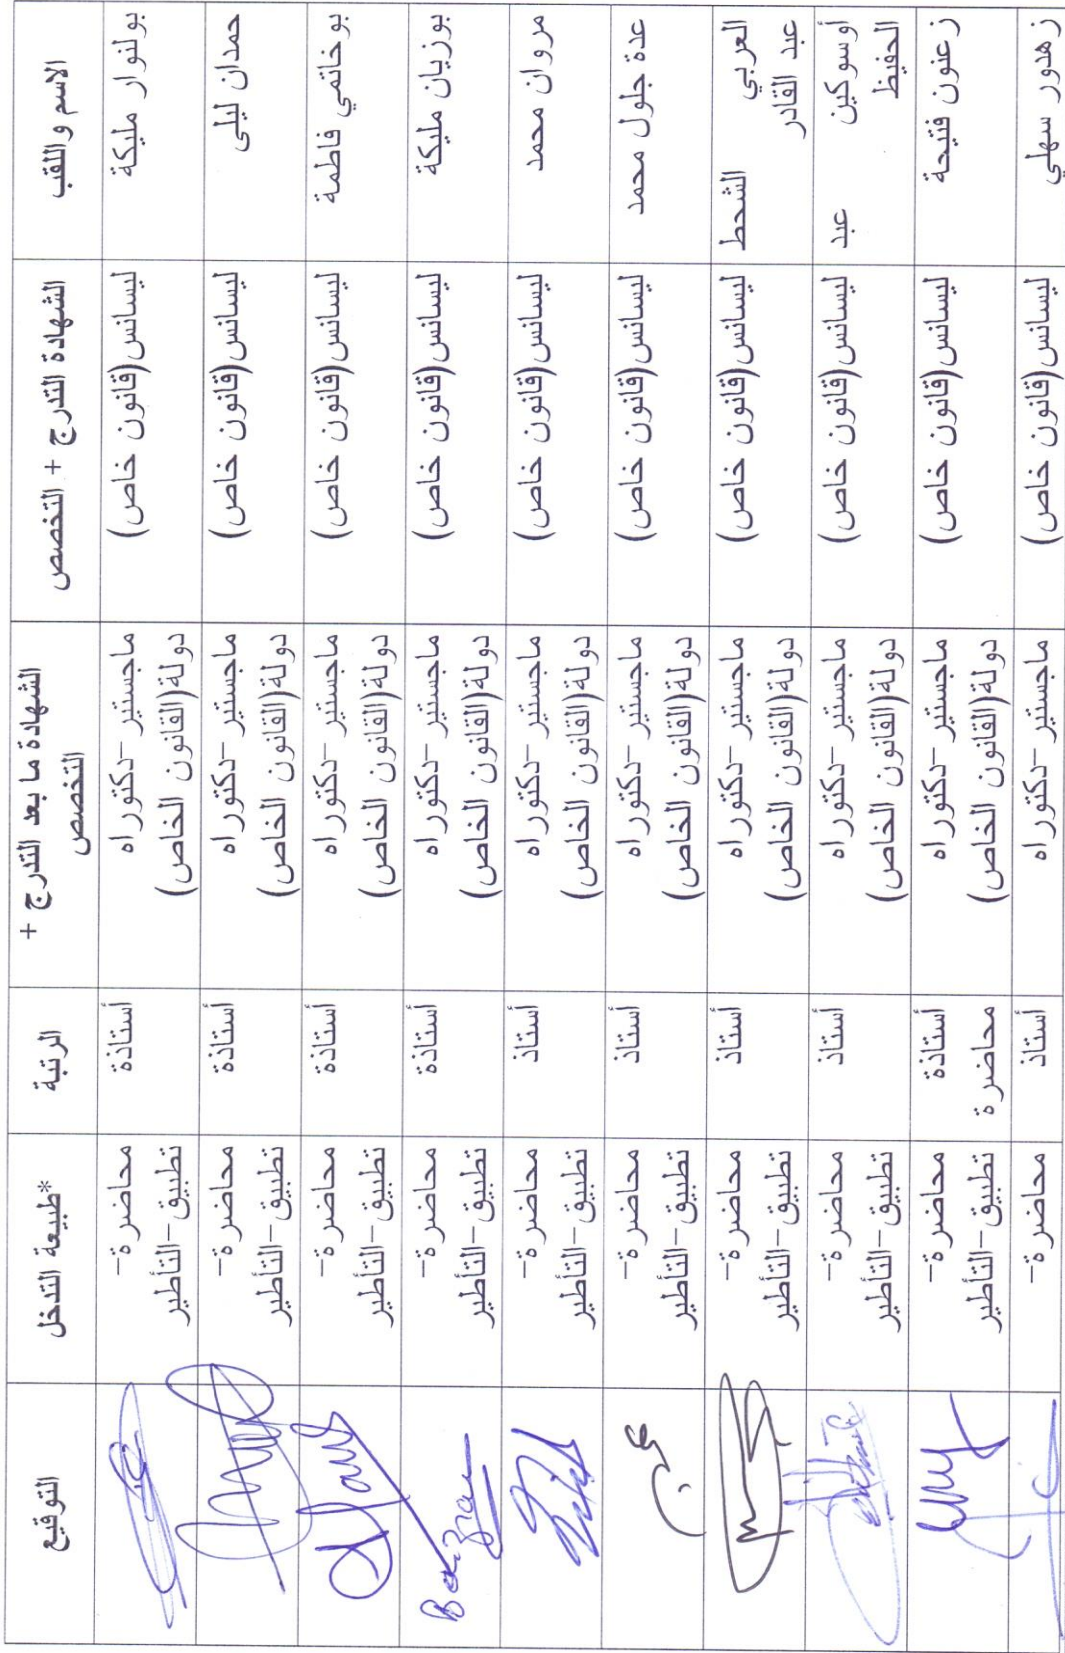 الاسم واللقب
الشهادة التدرج + التخصص
الشهادة ما بعد التدرج +
التخصص
الرتبة
*طبيعة التدخل
التوقيع
بولنوار مليكة
ليسانس(قانون خاص)
ماجستير -دكتوراه
دولة(القانون الخاص)
أستاذة
محاضرة-
تطبيق-التأطير
حمدان ليلى
ليسانس(قانون خاص)
ماجستير -دكتوراه
دولة(القانون الخاص)
أستاذة
محاضرة-
تطبيق-التأطير
بوخاتمي فاطمة
ليسانس(قانون خاص)
ماجستير -دكتوراه
دولة(القانون الخاص)
أستاذة
محاضرة-
تطبيق-التأطير
بوزيان مليكة
ليسانس(قانون خاص)
ماجستير -دكتوراه
دولة(القانون الخاص)
أستاذة
محاضرة-
تطبيق-التأطير
مروان محمد
ليسانس(قانون خاص)
ماجستير -دكتوراه
دولة(القانون الخاص)
أستاذ
محاضرة-
تطبيق-التأطير
عدة جلول محمد
ليسانس(قانون خاص)
ماجستير -دكتوراه
دولة(القانون الخاص)
أستاذ
محاضرة-
تطبيق-التأطير
العربي الشحط
عبد القادر
ليسانس(قانون خاص)
ماجستير -دكتوراه
دولة(القانون الخاص)
أستاذ
محاضرة-
تطبيق-التأطير
أوسوكين عبد
الحفيظ
ليسانس(قانون خاص)
ماجستير -دكتوراه
دولة(القانون الخاص)
أستاذ
محاضرة-
تطبيق-التأطير
زعنون فتيحة
ليسانس(قانون خاص)
ماجستير -دكتوراه
دولة(القانون الخاص)
أستاذة
محاضرة
محاضرة-
تطبيق-التأطير
زهدور سهلي
ليسانس(قانون خاص)
ماجستير -دكتوراه
أستاذ
محاضرة-